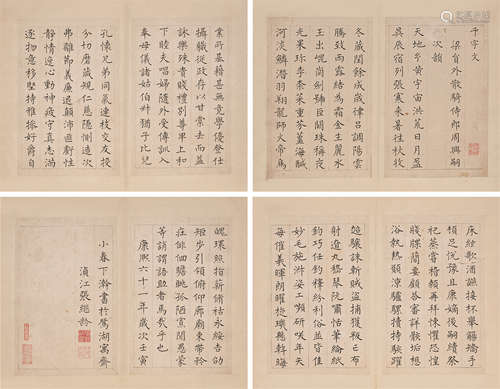 千字文
梁員外散騎侍郎周興嗣
次韻
天地玄黃宇宙洪荒日月盈
昃辰宿列張寒來暑往秋收
冬藏閏餘成歲律呂調陽雲
騰致雨露結為霜金生麗水
玉出崑岡劍號巨闕珠稱夜
光果珍李柰菜重芥薑海鹹
河淡鱗潛羽翔龍師火帝鳥
業所基籍甚無竟學優登仕
攝職從政存以甘棠去而益
詠樂殊貴賤禮別尊卑上和
下睦夫唱婦隨外受傅訓入
奉母儀諸姑伯叔猶子比兒
孔懷兄弟同氣連枝交友投
分切磨箴規仁慈隱惻造次
弗離節義廉退顛沛匪虧性
靜情逸心動神疲守真志滿
逐物意移堅持雅操好爵自
床絃歌酒讌接杯舉觴矯手
頓足悅豫且康嫡後嗣續祭
祀蒸嘗稽顙再拜悚懼恐惶
牋牒簡要顧答審詳骸垢想
浴執熱願涼驢騾犢特駭躍
超驤誅斬賊盜捕獲叛亡布
射遼丸嵇琴阮嘯恬筆倫紙
鈞巧任釣釋紛利俗並皆佳
妙毛施淑姿工顰妍笑年矢
每催羲暉朗曜璇璣懸斡晦
魄環照指薪脩祜永綏吉劭
矩步引領俯仰廊廟束帶矜
莊徘徊瞻眺孤陋寡聞愚蒙
等誚謂語助者焉哉乎也
康熙六十一年歲次壬寅
小春下澣書於鴛湖寓齋
江張繼齡